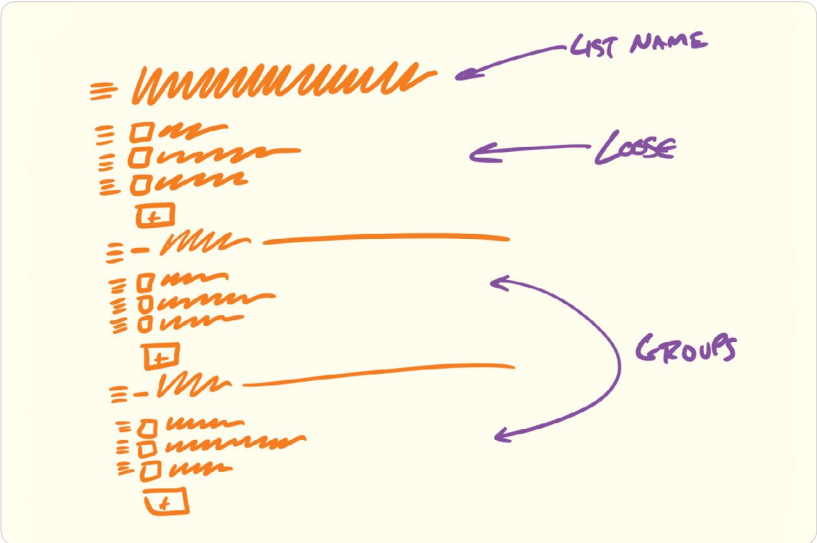 LIST NAME
LOOSE
+
+
GROUPS
+